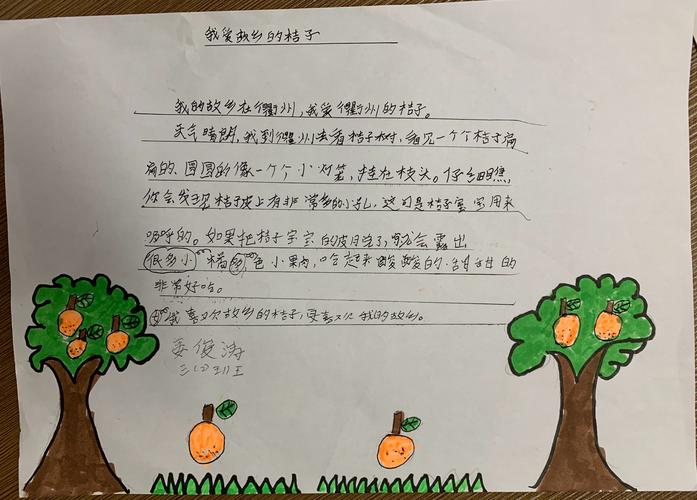 我爱故乡的桔子
我的故乡在衢州，我爱衢州的桔子。
天气晴朗，我到衢州去看桔子树，看见一个个桔子扁
扁的、圆圆的像一个个小灯笼，挂在枝头。仔细瞧，
你会发现桔子皮上有非常多的小孔，这可是桔子宝宝用来
呼吸的。如果把桔子宝宝的皮剥了，就会露出
很多小橘色小果肉，吃起来酸酸的甜甜的
非常好吃。
我喜欢故乡的桔子，更喜欢我的故乡。
俊涛
三(2)班